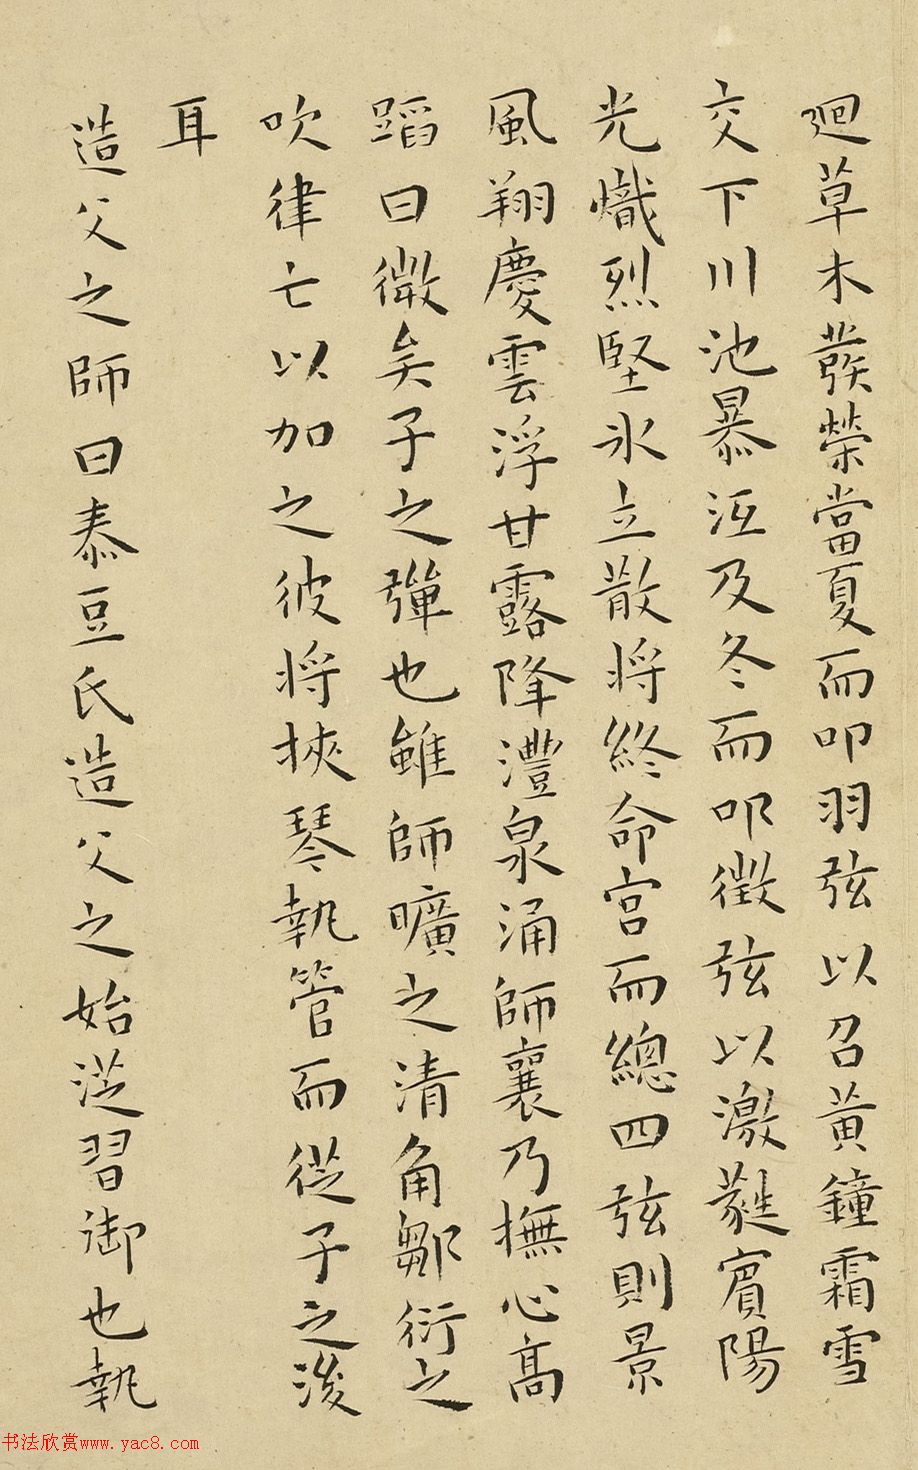 廻草木發榮當夏而叩羽弦以召黃鐘霜雪
交下川池暴沍及冬而叩徵弦以激蕤賓陽
光熾烈堅氷立散將終命宮而總四弦則景
風翔慶雲浮甘露降澧泉涌師襄乃撫心高
蹈曰微矣子之彈也雖師曠之清角鄒衍之
吹律亡以加之彼將挾琴執管而從子之後
耳
造父之師曰泰豆氏造父之始從習御也執
书法欣赏www.yac8.com